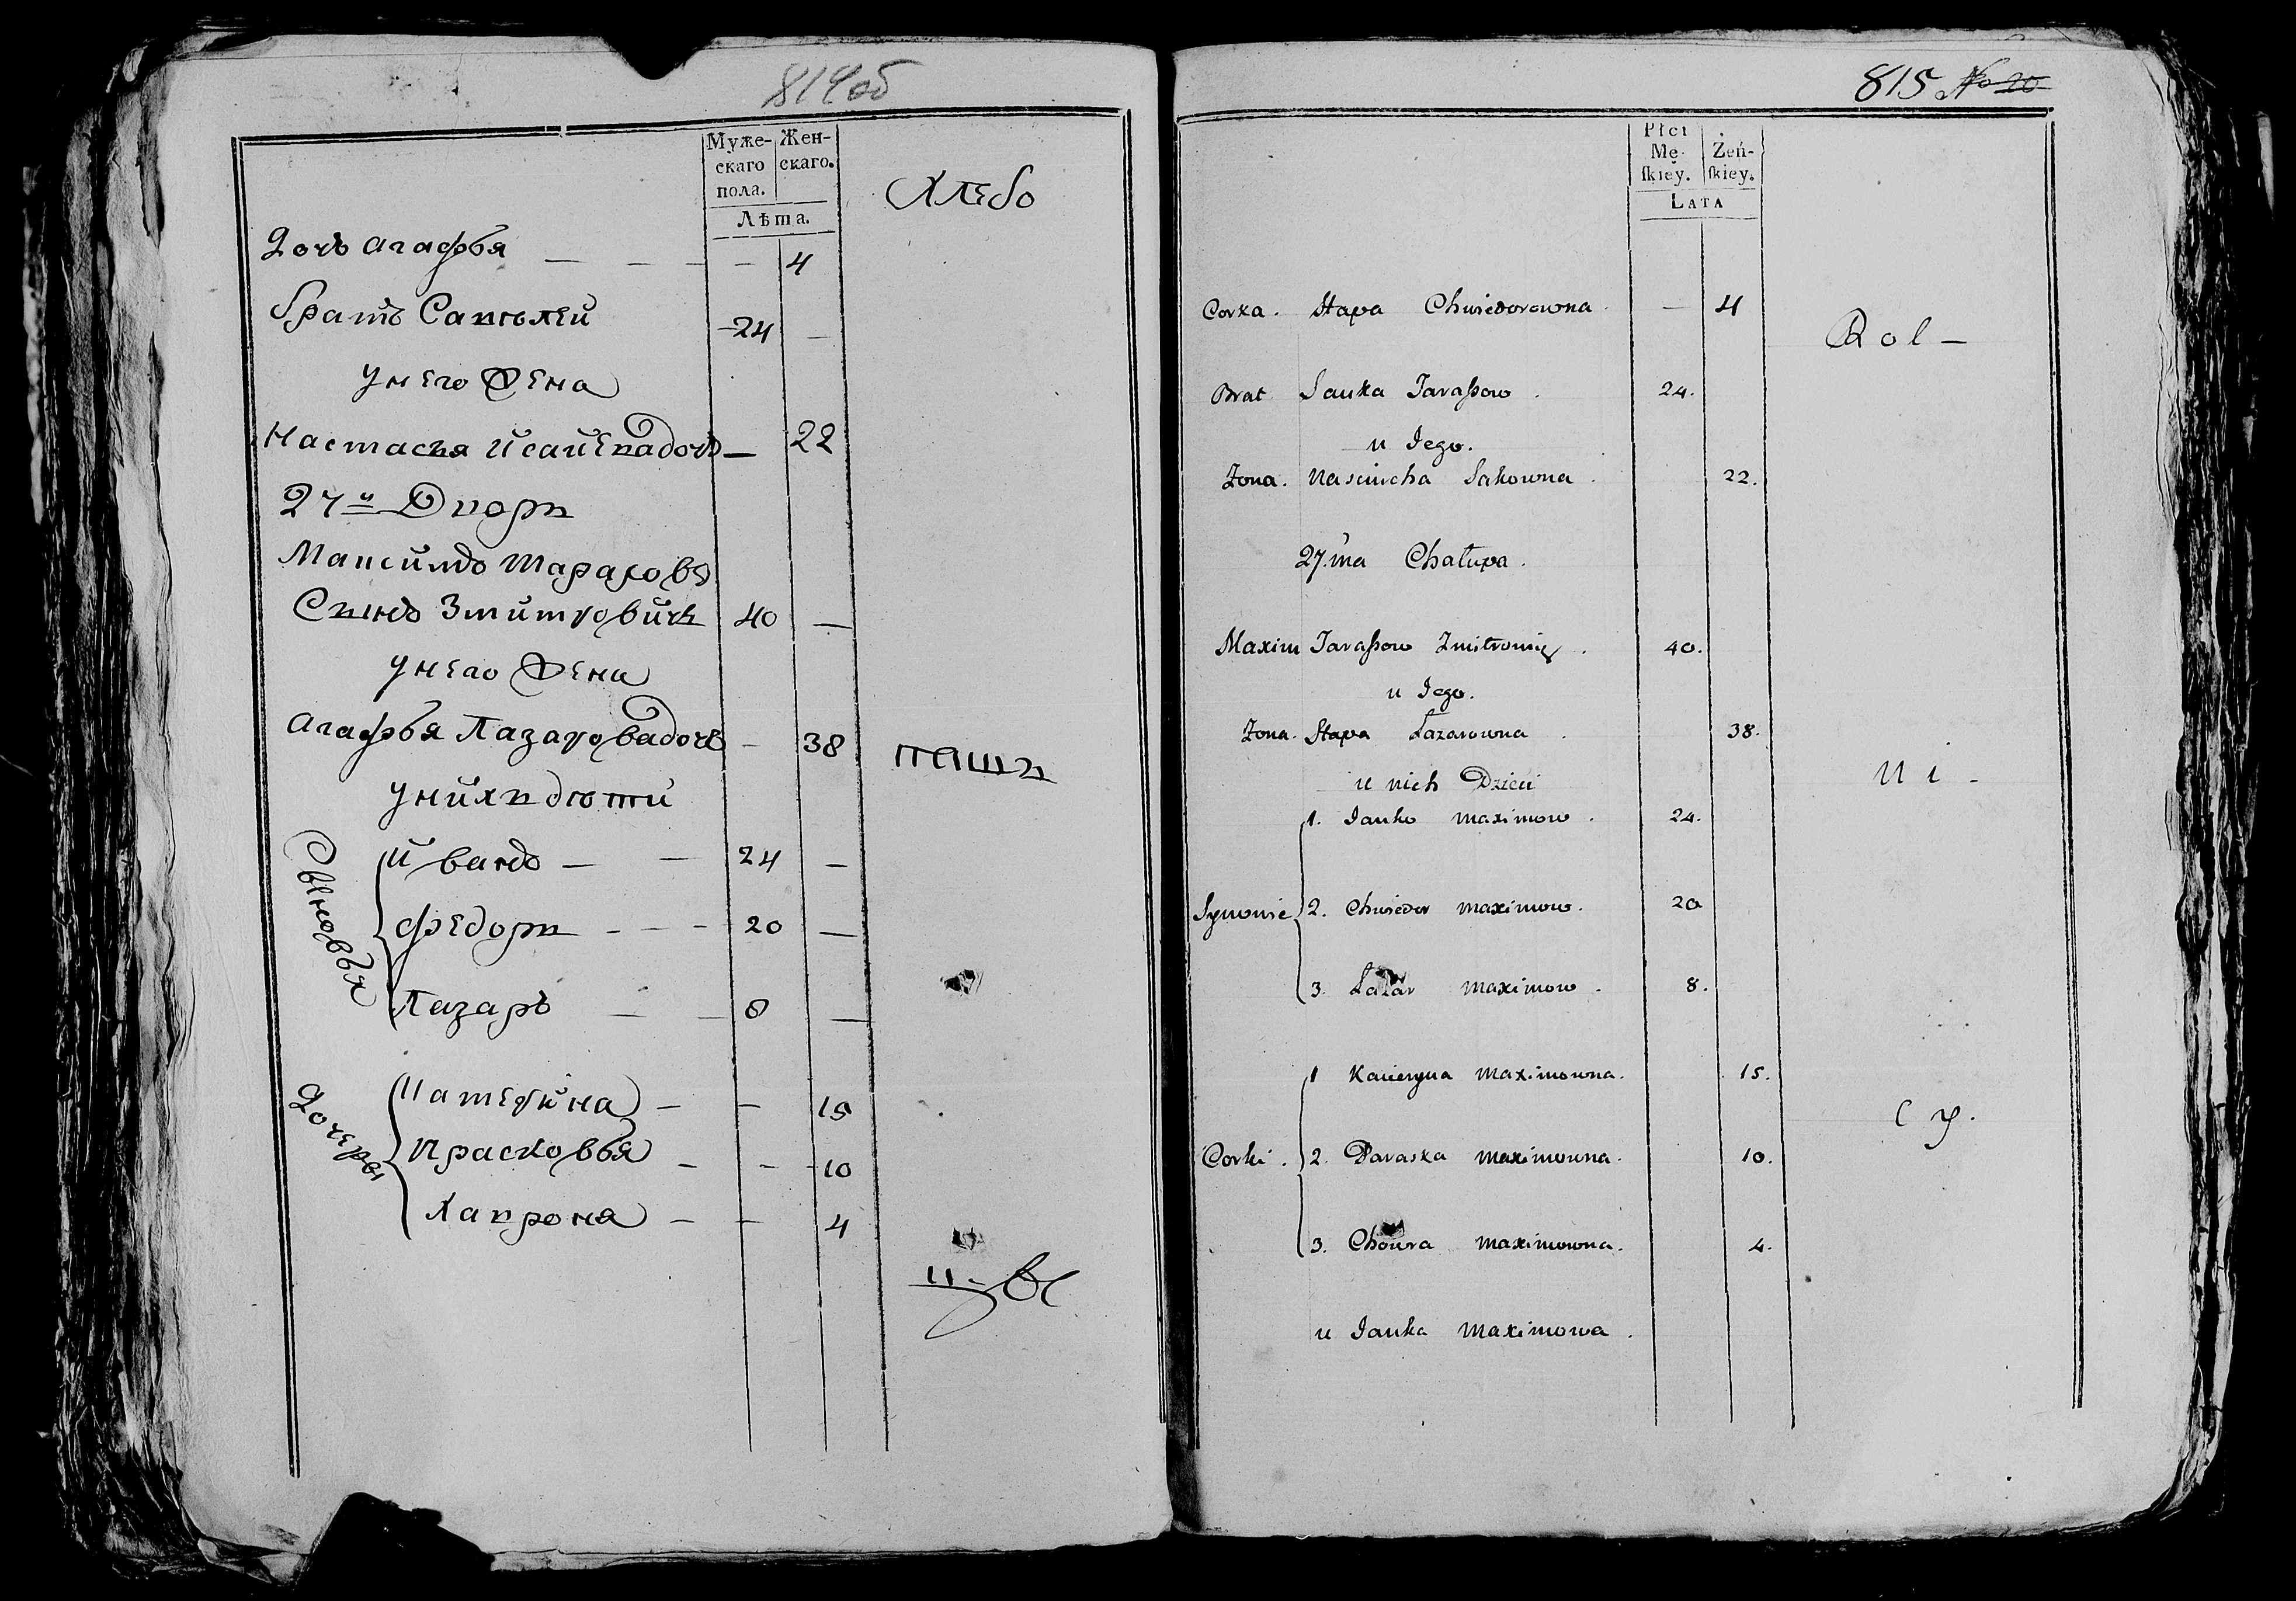 814об
Муже-
скаго
пола.
Жен-
скаго.
Лѣта.
Хлебо
Дочь Агафья — — — — 4
братъ Савѣлей 24 —
унего жена
Настасья Исайевадочь — 22
27й Дворъ
Максимъ Тарасовъ
Сынъ Змитровичъ 40 —
унего жена
Агафья Лазаровадочь — 38
пашъ
унихъ дѣти
Сыновья
Иванъ — — 24 —
Федоръ - - - 20 —
Лазарь — — 8 —
Дочеры
Катерина — — 15
Прасковья — - - 10
Хапроня — — 4
цы
815 No 20
Płci
Mę-
skiey.
Żeń-
skiey.
LATA
Corka. Hapa Chwiedorowna. — 4
Rol -
Brat Sauka Tarasow. 24.
u Jego.
Żona. Nasciucha Sakowna. 22.
27.ma Chałupa.
Maxim Tarasow Zmitrowicz. 40.
u Jego.
Żona. Hapa Łazarowna. 38.
ni -
u nich Dzieci
Synowie
1. Janko Maximow. 24.
2. Chwiedor Maximow. 20
3. Łazar Maximow. 8.
Corki.
1 Kacieryna Maximowna. 15.
cy.
2. Paraska Maximowna. 10.
3. Chowra Maximowna. 4.
u Janka Maximowa.